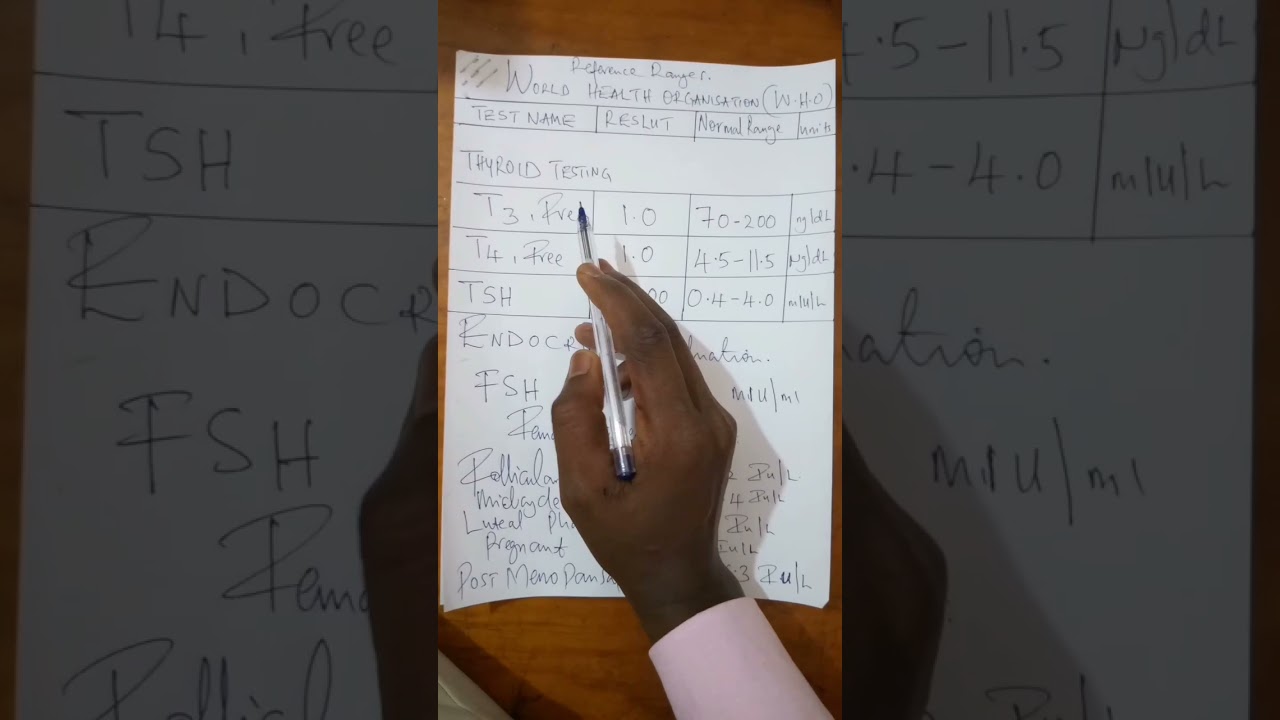 Reference Ranges.
WORLD HEALTH ORGANISATION (W.H.O)
TEST NAME RESLUT Normal Range units
THYROID TESTING
T3, Free 1.0 70-200 ng/dL
T4, Free 1.0 4.5-11.5 µg/dL
TSH 00 0.4-4.0 mIU/L
ENDOCR
FSH mIU/ml
Follicular IU/L
Midcycle 4 IU/L
Luteal Pha IU/L
Pregnant IU/L
POST MENOPAUSA .3 IU/L